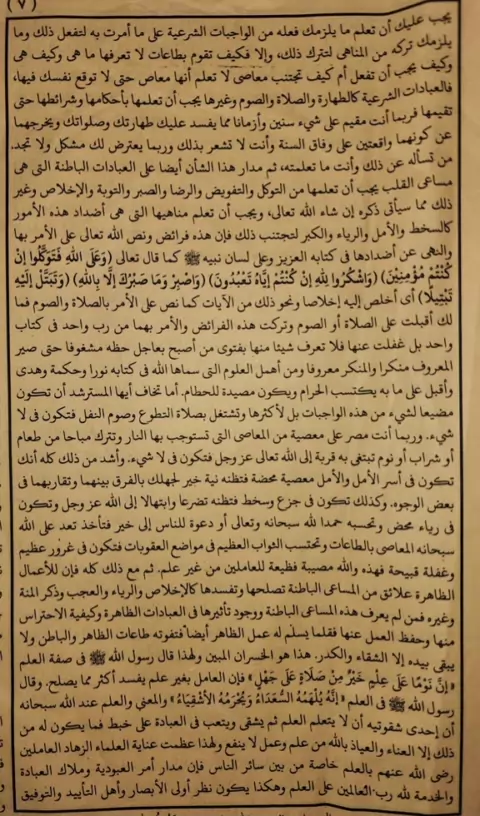 (٧)
يجب عليك أن تعلم ما يلزمك فعله من الواجبات الشرعية على ما أمرت به لتفعل ذلك وما
يلزمك تركه من المناهى لتترك ذلك، وإلا فكيف تقوم بطاعات لا تعرفها ما هى وكيف هى
وكيف يجب أن تفعل أم كيف تجتنب معاصى لا تعلم أنها معاص حتى لا توقع نفسك فيها،
فالعبادات الشرعية كالطهارة والصلاة والصوم وغيرها يجب أن تعلمها بأحكامها وشرائطها حتى
تقيمها فربما أنت مقيم على شىء سنين وأزمانا مما يفسد عليك طهارتك وصلواتك ويخرجهما
عن كونهما واقعتين على وفاق السنة وأنت لا تشعر بذلك وربما يعترض لك مشكل ولا تجد.
من تسأله عن ذلك وأنت ما تعلمته، ثم مدار هذا الشأن أيضا على العبادات الباطنة التى هى
مساعى القلب يجب أن تعلمها من التوكل والتفويض والرضا والصبر والتوبة والإخلاص وغير
ذلك مما سيأتى ذكره إن شاء الله تعالى، ويجب أن تعلم مناهيها التى هى أضداد هذه الأمور
كالسخط والأمل والرياء والكبر لتجتنب ذلك فإن هذه فرائض ونص الله تعالى على الأمر بها
والنهى عن أضدادها فى كتابه العزيز وعلى لسان نبيه ﷺ كما قال تعالى (وَعَلَى اللهِ فَتَوَكَّلُوا إِنْ
كُنْتُمْ مُؤْمِنِينَ) (وَاشْكُرُوا لِلهِ إِنْ كُنْتُمْ إِيَّاهُ تَعْبُدُونَ) (وَاصْبِرْ وَمَا صَبْرُكَ إِلَّا بِاللهِ) (وَتَبَتَّلْ إِلَيْهِ
تَبْتِيلًا) أى أخلص إليه إخلاصا ونحو ذلك من الآيات كما نص على الأمر بالصلاة والصوم فما
لك أقبلت على الصلاة أو الصوم وتركت هذه الفرائض والأمر بهما من رب واحد فى كتاب
واحد بل غفلت عنها فلا تعرف شيئا منها بفتوى من أصبح بعاجل حظه مشغوفا حتى صير
المعروف منكرا والمنكر معروفا ومن أهمل العلوم التى سماها الله فى كتابه نورا وحكمة وهدى
وأقبل على ما به يكتسب الحرام ويكون مصيدة للحطام. أما تخاف أيها المسترشد أن تكون
مضيعا لشىء من هذه الواجبات بل لأكثرها وتشتغل بصلاة التطوع وصوم النفل فتكون فى لا
شىء. وربما أنت مصر على معصية من المعاصى التى تستوجب بها النار وتترك مباحا من طعام
أو شراب أو نوم تبتغى به قربة إلى الله عز وجل فتكون فى لا شىء. وأشد من ذلك كله أنك
تكون فى أسر الأمل والأمل معصية محضة فتظنه نية خير لجهلك بالفرق بينهما وتقاربهما فى
بعض الوجوه. وكذلك تكون فى جزع وسخط فتظنه تضرعا وابتهالا إلى الله عز وجل وتكون
فى رياء محض وتحسبه حمدا لله سبحانه وتعالى أو دعوة للناس إلى خير فتأخذ تعد على الله
سبحانه المعاصى بالطاعات وتحتسب الثواب العظيم فى مواضع العقوبات فتكون فى غرور عظيم
وغفلة قبيحة فهذه والله مصيبة فظيعة للعاملين من غير علم. ثم مع ذلك كله فإن للأعمال
الظاهرة علائق من المساعى الباطنة تصلحها وتفسدها كالإخلاص والرياء والعجب وذكر المنة
وغيره فمن لم يعرف هذه المساعى الباطنة ووجود تأثيرها فى العبادات الظاهرة وكيفية الاحتراس
منها وحفظ العمل عنها فقلما يسلم له عمل الظاهر أيضا فتفوته طاعات الظاهر والباطن ولا
يبقى بيده إلا الشقاء والكدر. هذا هو الخسران المبين ولهذا قال رسول الله ﷺ فى صفة العلم
«إِنَّ نَوْمًا عَلَى عِلْمٍ خَيْرٌ مِنْ صَلَاةٍ عَلَى جَهْلٍ» فإن العامل بغير علم يفسد أكثر مما يصلح. وقال
رسول الله ﷺ فى العلم «إِنَّهُ يُلْهَمُهُ السُّعَدَاءُ وَيُحْرَمُهُ الأَشْقِيَاءُ» والمعنى والعلم عند الله سبحانه
أن إحدى شقوتيه أن لا يتعلم العلم ثم يشقى ويتعب فى العبادة على خبط فما يكون له من
ذلك إلا العناء والعياذ بالله من علم وعمل لا ينفع ولهذا عظمت عناية العلماء الزهاد العاملين
رضى الله عنهم بالعلم خاصة من بين سائر الناس فإن مدار أمر العبودية وملاك العبادة
والخدمة لله رب العالمين على العلم وهكذا يكون نظر أولى الأبصار وأهل التأييد والتوفيق